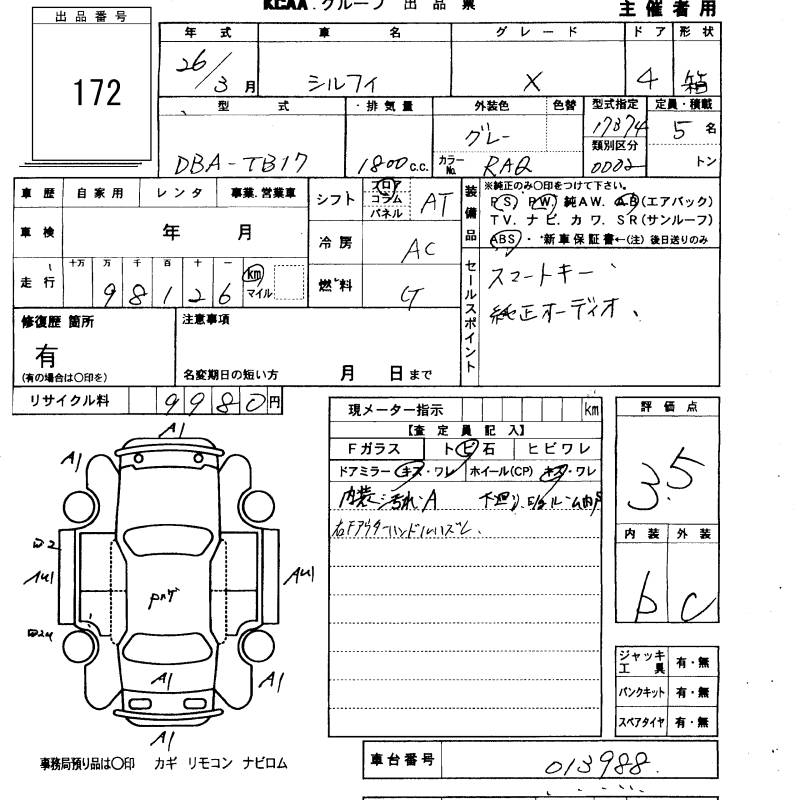 KCAA.グループ 出品票
主催者用
出品番号
172
年式 車名 グレード ドア 形状
26/3月 シルフィ X 4 箱
型式 排気量 外装色 色替 型式指定 定員・積載
DBA-TB17 1800c.c. グレー 17874 5名
類別区分
カラーNo. RAQ 0002 トン
車歴 自家用 レンタ 事業.営業車
シフト フロア コラム パネル AT
装備品
※純正のみ○印をつけて下さい。
P.S. P.W. 純AW. AB(エアバック)
TV. ナビ. カワ. SR(サンルーフ)
ABS ・新車保証書←(注)後日送りのみ
車検 年 月
冷房 AC
走行 十万 万 千 百 十 一
98126 km マイル
燃料 G
セールスポイント
スマートキー、
純正オーディオ、
修復歴 箇所
有
(有の場合は○印を)
注意事項
名変期日の短い方 月 日まで
リサイクル料 9980円
現メーター指示 km
【査定員記入】
Fガラス トビ石 ヒビワレ
ドアミラー キズ・ワレ ホイール(CP) キズ・ワレ
内装汚れ.A 下廻り、E/gルーム内S
右Fアウターハンドルハズレ、
評価点
3.5
内装 外装
b C
A1
A1
AU1
AU1
A1
A1
A1
ジャッキ工具 有・無
パンクキット 有・無
スペアタイヤ 有・無
事務局預り品は○印 カギ リモコン ナビロム
車台番号 013988